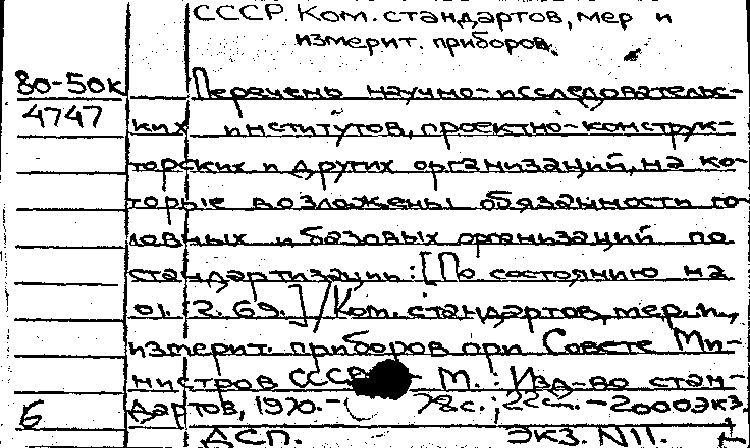 СССР. Ком. стандартов, мер и
измерит. приборов.
80-50к
4747
Перечень научно-исследовательс-
ких институтов, проектно-конструк-
торских и других организаций, на ко-
торые возложены обязанности го-
ловных и базовых организаций по
стандартизации: [По состоянию на
01. 2. 69.] / Ком. стандартов, мер. и
измерит. приборов при Совете Ми-
нистров СССР - М.: Изд-во стан-
Б
дартов, 1970. - 78 с.; 22 см. - 2000 экз.
ДСП. ЭКЗ. N11.